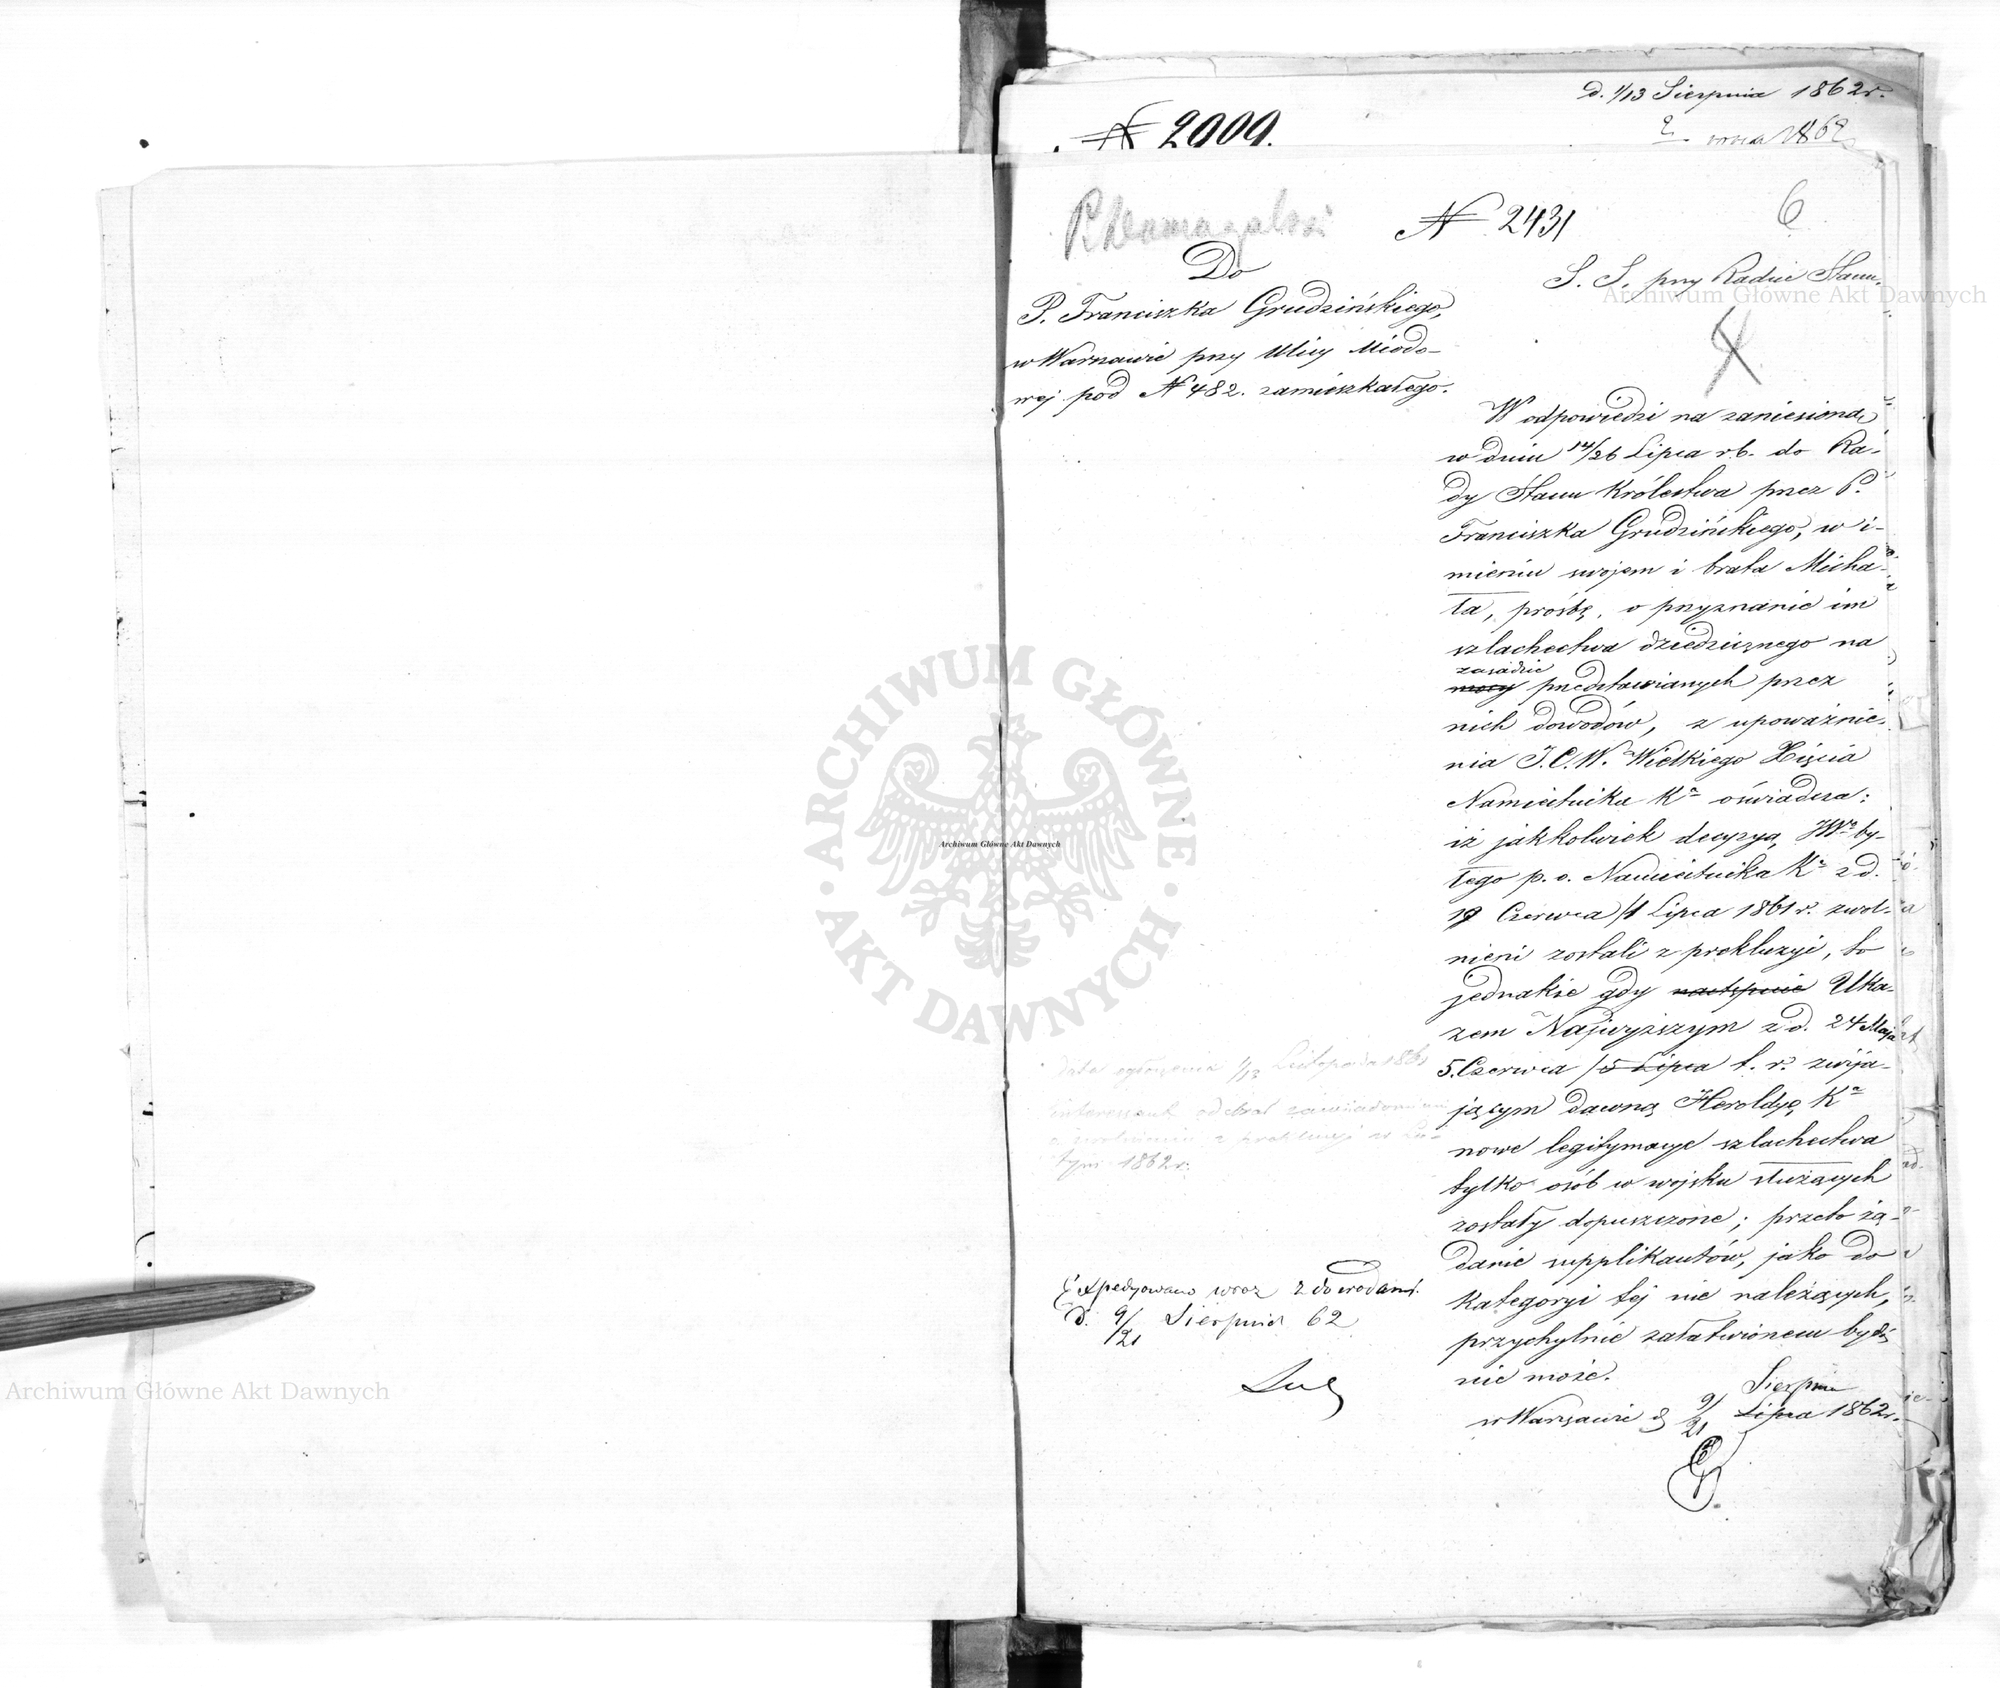 d. 1/13 Sierpnia 1862 r.
№ 2009.
1862
P. Domagalski
№ 2431
6
Do
P. Franciszka Grudzińskiego,
w Warszawie przy Ulicy Miodo-
wej pod № 482. zamieszkałego.
S. S. przy Radzie Stanu.
W odpowiedzi na zaniesioną
w dniu 14/26 Lipca r.b. do Ra-
dy Stanu Królestwa przez P.
Franciszka Grudzińskiego, w i-
mieniu swojem i brata Micha-
ła, prośbę, o przyznanie im
szlachectwa dziedzicznego na
zasadzie
mocy przedstawianych przez
nich dowodów, z upoważnie-
nia J.C.W. Wielkiego Xięcia
Namiestnika Kª oświadcza:
iż jakkolwiek decyzyą JWº by-
łego p.o. Namiestnika Kª z d.
19 Czerwca/1 Lipca 1861 r. zwol-
nieni zostali z prekluzyi, to
jednakże gdy następnie Uka-
zem Najwyższym z d. 24 Maja
5. Czerwca /5 Lipca t. r. zwija-
jącym dawną Heroldyę Kª
nowe legitymacye szlachectwa
tylko osób w wojsku służących
zostały dopuszczone; przeto żą-
danie supplikantów, jako do
kategoryi tej nie należących,
przychylnie załatwionem bydź
nie może.
Sierpnia
w Warszawie d 9/21 Lipca 1862 r.
data ogłoszenia 1/13 Listopada 1861
interessent odebrał zawiadomienie
o zwolnieniu z prekluzyi w Lu-
tym 1862 r.
Expedyowano wraz z dowodami.
d. 9/21 Sierpnia 62
Archiwum Główne Akt Dawnych
ARCHIWUM GŁÓWNE
AKT DAWNYCH
Archiwum Główne Akt Dawnych
Archiwum Główne Akt Dawnych